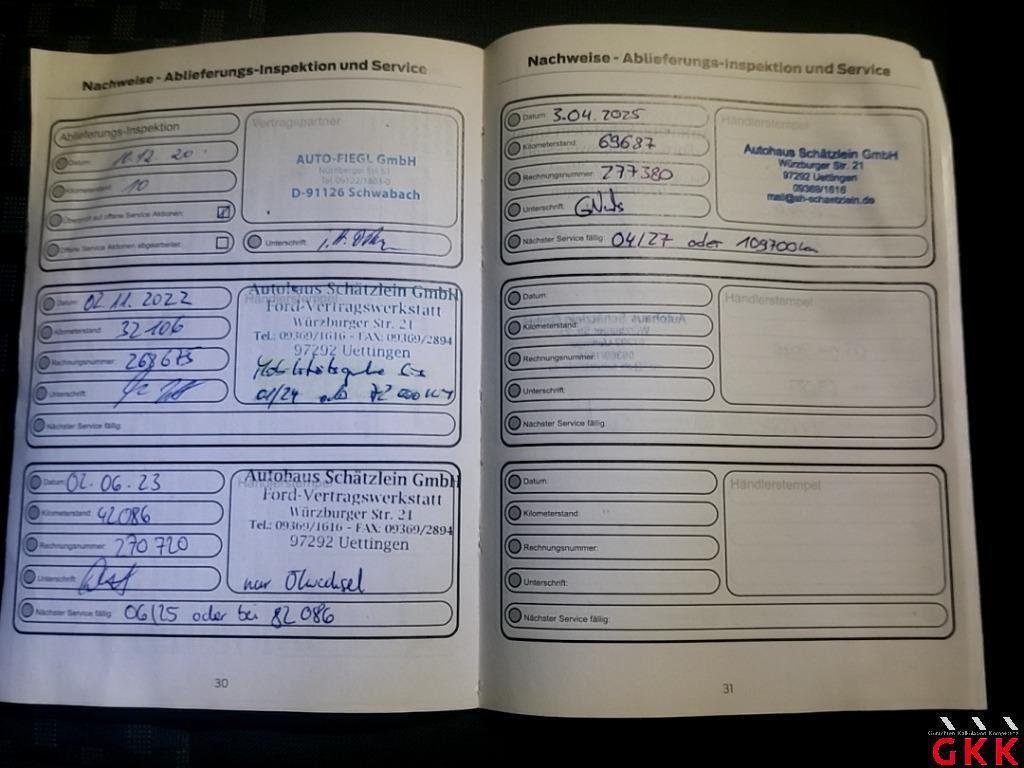 Nachweise - Ablieferungs-Inspektion und Service
Ablieferungs-Inspektion
Datum: 10.12.20
10
Überprüft auf offene Service Aktionen:
Offene Service Aktionen abgearbeitet:
Vertragspartner
AUTO-FIEGL GmbH
Nürnberger Str. 51
Tel. 09122/1803-0
D-91126 Schwabach
Unterschrift:
Datum: 02.11.2022
Kilometerstand: 32106
Rechnungsnummer: 268675
Unterschrift:
Nächster Service fällig:
Händlerstempel
Autohaus Schätzlein GmbH
Ford-Vertragswerkstatt
Würzburger Str. 21
Tel.: 09369/1616 - FAX: 09369/2894
97292 Uettingen
01/24 72 000 KM
Datum: 02.06.23
Kilometerstand: 42086
Rechnungsnummer: 270720
Unterschrift:
Händlerstempel
Autohaus Schätzlein GmbH
Ford-Vertragswerkstatt
Würzburger Str. 21
Tel.: 09369/1616 - FAX: 09369/2894
97292 Uettingen
nur Ölwechsel
Nächster Service fällig: 06/25 oder bei 82086
30
Nachweise - Ablieferungs-Inspektion und Service
Datum: 3.04.2025
Kilometerstand: 69687
Rechnungsnummer: 277380
Unterschrift:
Händlerstempel
Autohaus Schätzlein GmbH
Würzburger Str. 21
97292 Uettingen
09369/1616
mail@ah-schaetzlein.de
Nächster Service fällig: 04/27 oder 109700km
Datum:
Kilometerstand:
Rechnungsnummer:
Unterschrift:
Nächster Service fällig:
Händlerstempel
Datum:
Kilometerstand:
Rechnungsnummer:
Unterschrift:
Nächster Service fällig:
Händlerstempel
31
Gutachten Kalkulation Kompetenz
GKK